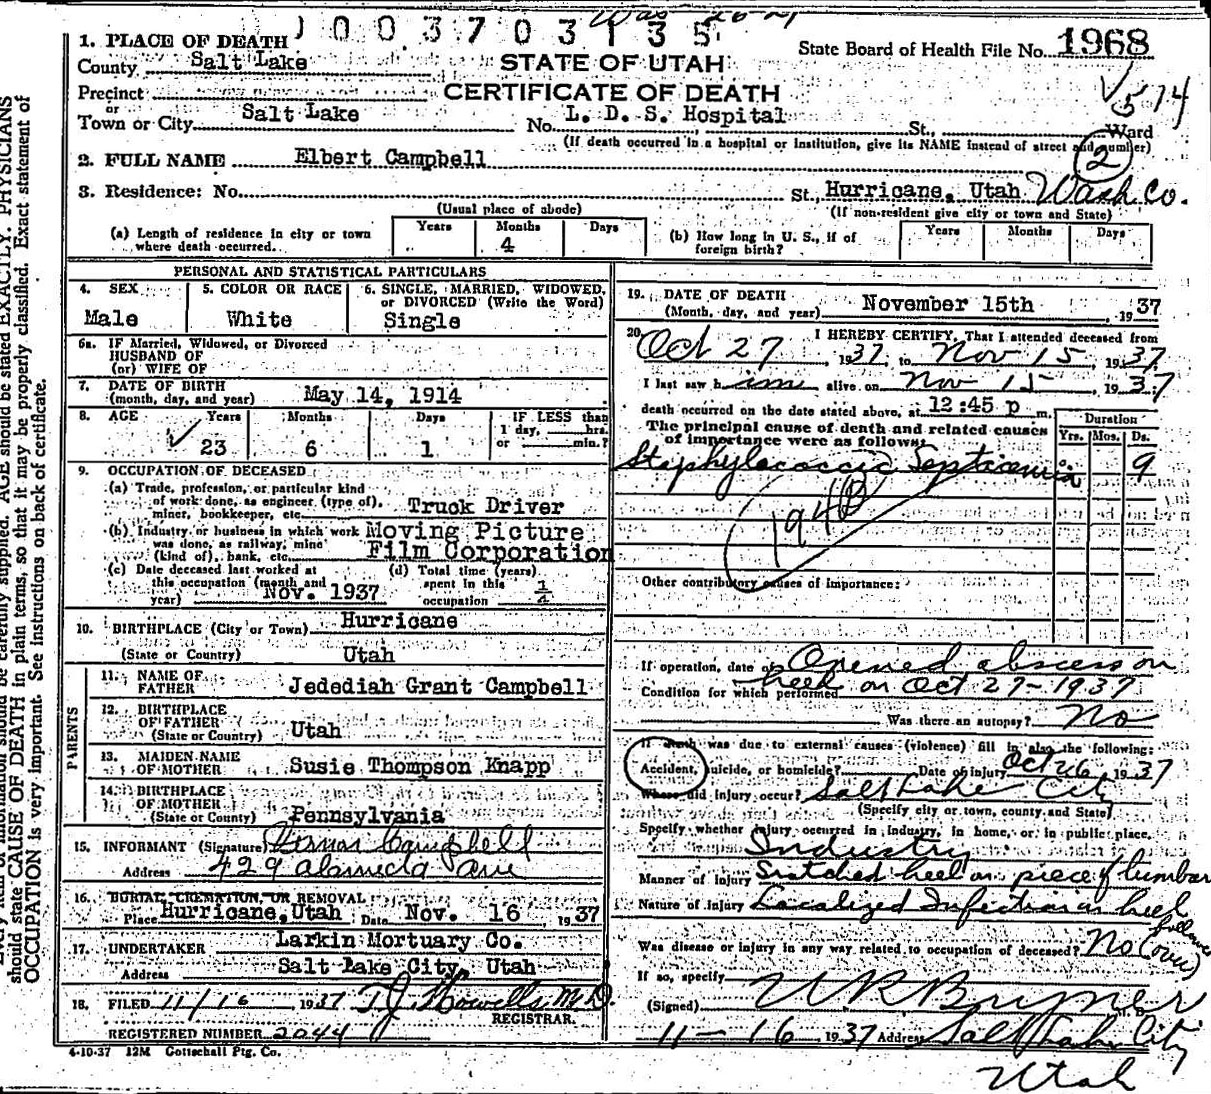 1003703135
1. PLACE OF DEATH
State Board of Health File No. 1968
County Salt Lake
STATE OF UTAH
574
Precinct
CERTIFICATE OF DEATH
or
Town or City Salt Lake No. L. D. S. Hospital St., Ward
(If death occurred in a hospital or institution, give its NAME instead of street and number)
2
2. FULL NAME Elbert Campbell
3. Residence: No. St., Hurricane, Utah Wash. Co.
(Usual place of abode) (If non-resident give city or town and State)
(a) Length of residence in city or town where death occurred. Years Months 4 Days
(b) How long in U. S., if of foreign birth? Years Months Days
PERSONAL AND STATISTICAL PARTICULARS
4. SEX Male
5. COLOR OR RACE White
6. SINGLE, MARRIED, WIDOWED, or DIVORCED (Write the Word) Single
6a. IF Married, Widowed, or Divorced
HUSBAND OF
(or) WIFE OF
7. DATE OF BIRTH
(month, day, and year) May 14, 1914
8. AGE Years 23 Months 6 Days 1 IF LESS than
1 day, hrs.
or min.?
9. OCCUPATION OF DECEASED
(a) Trade, profession, or particular kind
of work done, as engineer (type of),
miner, bookkeeper, etc. Truck Driver
(b) Industry or business in which work
was done, as railway, mine
(kind of), bank, etc. Moving Picture
Film Corporation
(c) Date deceased last worked at
this occupation (month and
year) Nov. 1937
(d) Total time (years)
spent in this
occupation 1/4
10. BIRTHPLACE (City or Town) Hurricane
(State or Country) Utah
PARENTS
11. NAME OF
FATHER Jedediah Grant Campbell
12. BIRTHPLACE
OF FATHER
(State or Country) Utah
13. MAIDEN NAME
OF MOTHER Susie Thompson Knapp
14. BIRTHPLACE
OF MOTHER
(State or Country) Pennsylvania
15. INFORMANT (Signature) Campbell
Address 429 Alameda Ave
16. BURIAL, CREMATION, OR REMOVAL
Place Hurricane, Utah Date Nov. 16 1937
17. UNDERTAKER Larkin Mortuary Co.
Address Salt Lake City, Utah
18. FILED 11/16 1937 T.J. Howells, M.D.
REGISTRAR.
REGISTERED NUMBER 2044
4-10-37 12M Gottschall Ptg. Co.
19. DATE OF DEATH
(Month, day, and year) November 15th, 1937
20. I HEREBY CERTIFY, That I attended deceased from
Oct 27 1937 to Nov 15, 1937
I last saw him alive on Nov 15, 1937
death occurred on the date stated above, at 12:45 p m.
The principal cause of death and related causes
of importance were as follows:
Duration
Yrs. Mos. Ds.
Staphylococcic Septicemia 9
194B
Other contributory causes of importance:
If operation, date of Opened abscess on
heel on Oct 27-1937
Condition for which performed
Was there an autopsy? No
If death was due to external causes (violence) fill in also the following:
Accident, suicide, or homicide? Date of injury Oct 26 1937
Where did injury occur? Salt Lake City
(Specify city or town, county and State)
Specify whether injury occurred in industry, in home, or in public place.
Industry
Manner of injury Scratched heel on piece of lumber
Nature of injury Localized Infection in heel
followed
Was disease or injury in any way related to occupation of deceased? No (over)
If so, specify
(Signed) M. D.
11-16 1937 Address Salt Lake City
Utah
should state CAUSE OF DEATH in plain terms, so that it may be properly classified. Exact statement of
OCCUPATION is very important. See instructions on back of certificate.